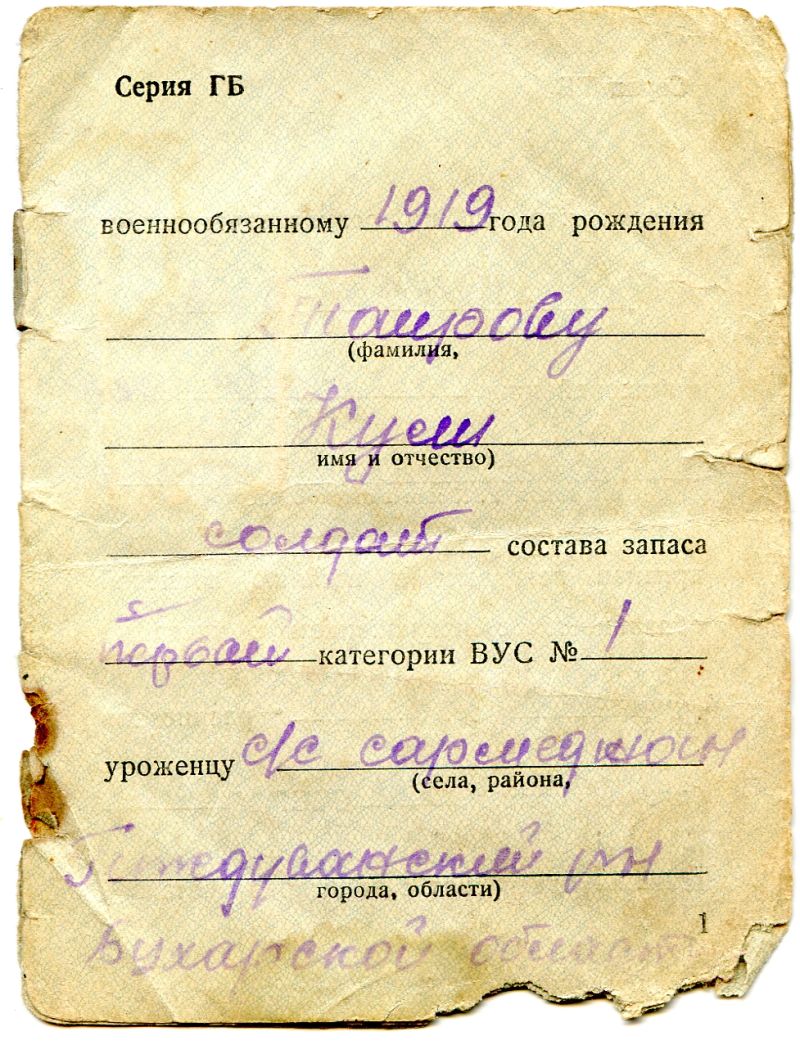 Серия ГБ
военнообязанному 1919 года рождения
Таирову
(фамилия,
Кули
имя и отчество)
солдат состава запаса
первой категории ВУС № 1
уроженцу с/с сармеджан
(села, района,
Гиждуванский р-н
города, области)
1
Бухарской области